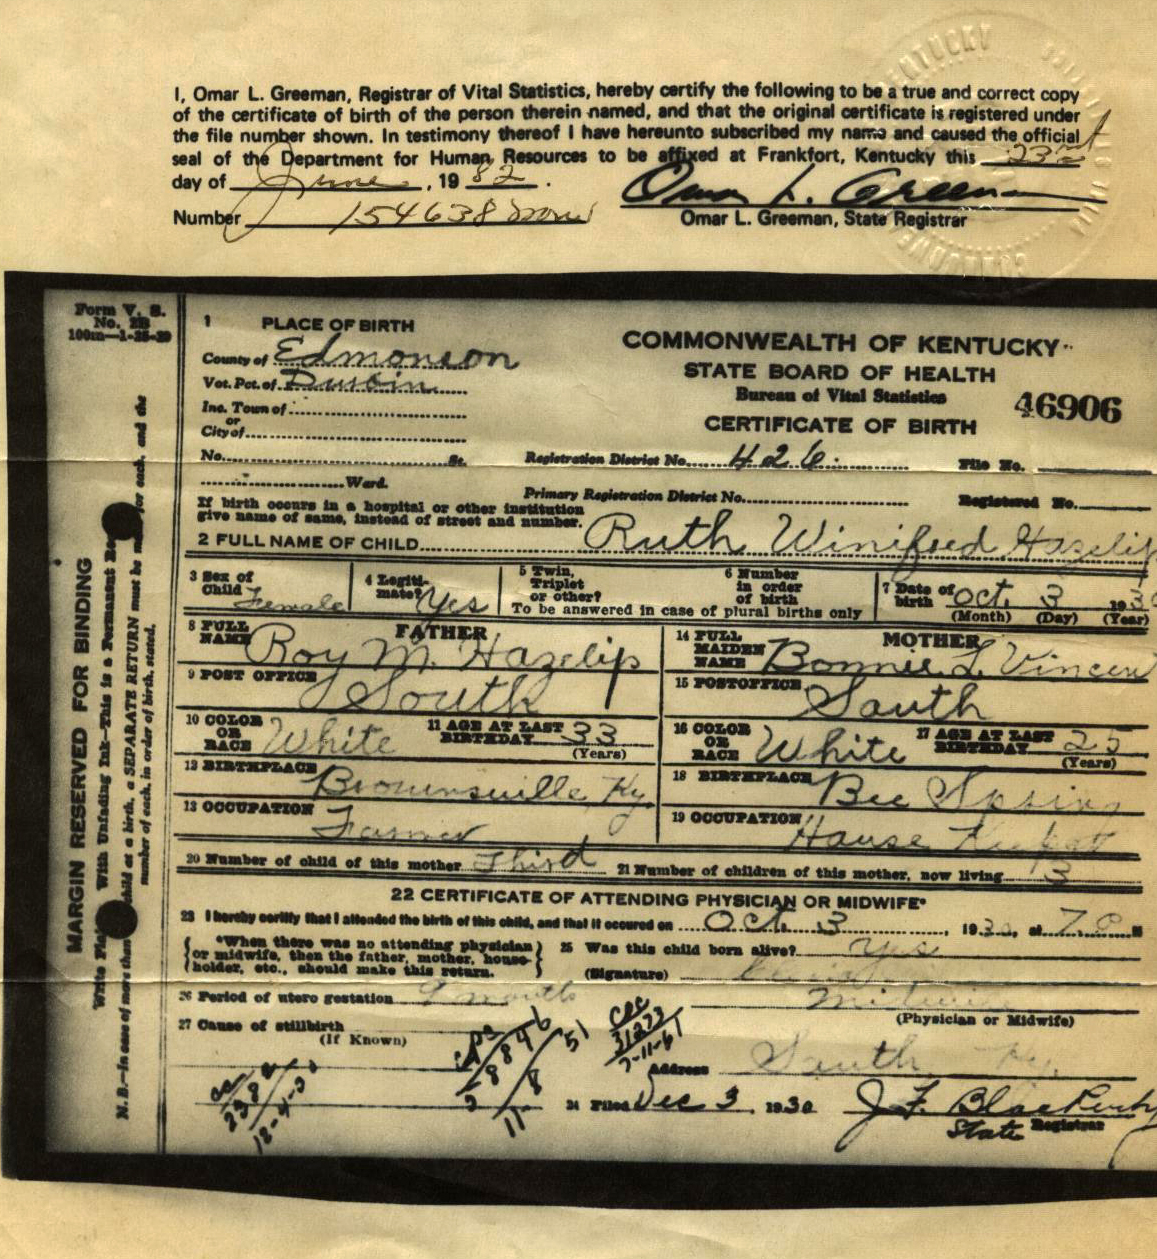 I, Omar L. Greeman, Registrar of Vital Statistics, hereby certify the following to be a true and correct copy
of the certificate of birth of the person therein named, and that the original certificate is registered under
the file number shown. In testimony thereof I have hereunto subscribed my name and caused the official
seal of the Department for Human Resources to be affixed at Frankfort, Kentucky this
day of June, 1982.
Omar L. Greeman
Number 154638
Omar L. Greeman, State Registrar
KENTUCKY
Form V. S.
No. 2B
MARGIN RESERVED FOR BINDING
1 PLACE OF BIRTH
County of Edmonson
Vot. Pct. of
Inc. Town of
or
City of
No. St.
Ward.
If birth occurs in a hospital or other institution
give name of same, instead of street and number.
COMMONWEALTH OF KENTUCKY
STATE BOARD OF HEALTH
Bureau of Vital Statistics
CERTIFICATE OF BIRTH
46906
Registration District No. 426. File No.
Primary Registration District No. Registered No.
2 FULL NAME OF CHILD Ruth Winifred Hazelip
3 Sex of Child Female
4 Legitimate? Yes
5 Twin, Triplet or other?
6 Number in order of birth
To be answered in case of plural births only
7 Date of birth Oct. 3 1930
(Month) (Day) (Year)
FATHER
8 FULL NAME Roy M. Hazelip
9 POST OFFICE South
10 COLOR OR RACE White
11 AGE AT LAST BIRTHDAY 33
(Years)
12 BIRTHPLACE Brownsville, Ky.
13 OCCUPATION Farmer
MOTHER
14 FULL MAIDEN NAME Bonnie L. Vincent
15 POSTOFFICE South
16 COLOR OR RACE White
17 AGE AT LAST BIRTHDAY 25
(Years)
18 BIRTHPLACE Bee Spring
19 OCCUPATION House
20 Number of child of this mother Third
21 Number of children of this mother, now living 3
22 CERTIFICATE OF ATTENDING PHYSICIAN OR MIDWIFE*
23 I hereby certify that I attended the birth of this child, and that it occured on Oct. 3, 1930, at
*When there was no attending physician
or midwife, then the father, mother, house-
holder, etc., should make this return.
25 Was this child born alive? yes
(Signature)
26 Period of utero gestation 9 months
Midwife
(Physician or Midwife)
27 Cause of stillbirth
(If Known)
Address South Ky.
24 Filed Dec 3, 1930
State Registrar
Write Plainly With Unfading Ink—This is a Permanent
N. B.—In case of more than child at a birth, a SEPARATE RETURN must be for each, and the
number of each, in order of birth, stated.